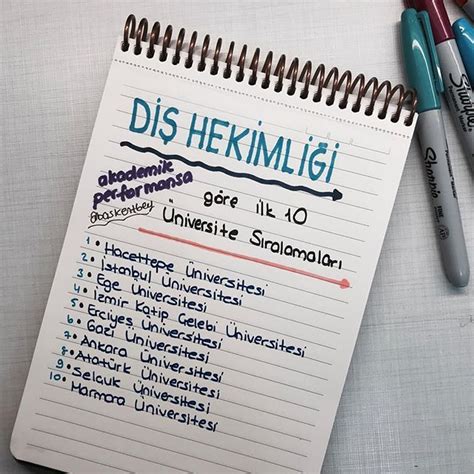 DİŞ HEKİMLİĞİ
akademik
performansa
@baskentbey
göre ilk 10
Üniversite Sıralamaları
1. Hacettepe Üniversitesi
2. İstanbul Üniversitesi
3. Ege Üniversitesi
4. İzmir Katip Çelebi Üniversitesi
5. Erciyes Üniversitesi
6. Gazi Üniversitesi
7. Ankara Üniversitesi
8. Atatürk Üniversitesi
9. Selçuk Üniversitesi
10. Marmara Üniversitesi
Sharpie
Sharpie